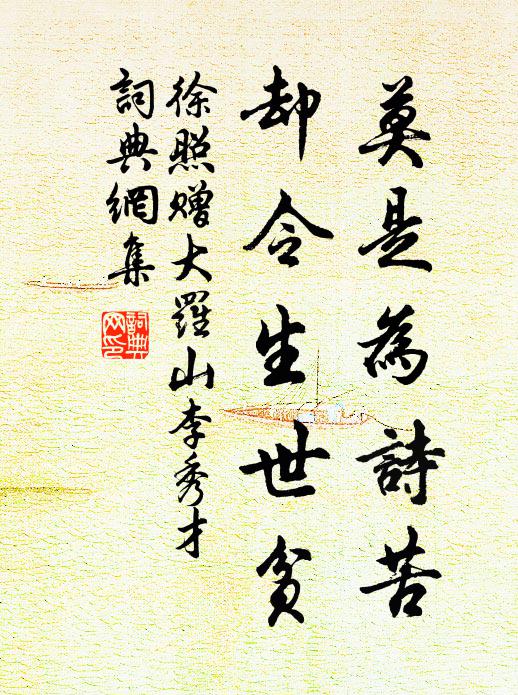 莫是為詩苦
却令生世貧
徐照贈大羅山李秀才
詞典網集
詞典
网印